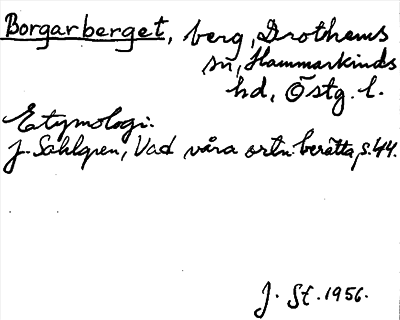 Borgarberget, berg, Drothems
sn, Hammarkinds
hd, Östg. l.
Etymologi:
J. Sahlgren, Vad våra ortn. berätta, s. 44.
J. St. 1956.